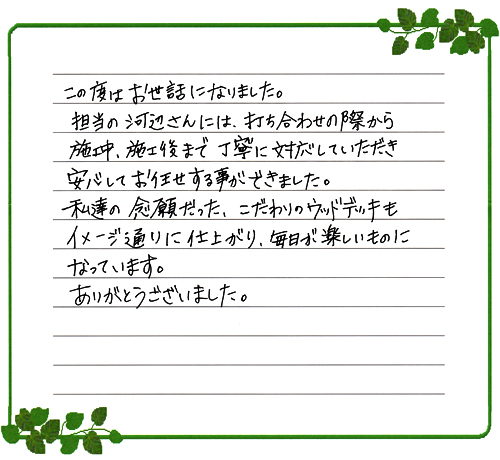 この度はお世話になりました。
担当の河辺さんには、打ち合わせの際から
施工中、施工後まで丁寧に対応していただき
安心してお任せする事ができました。
私達の念願だった、こだわりのウッドデッキも
イメージ通りに仕上がり、毎日が楽しいものに
なっています。
ありがとうございました。